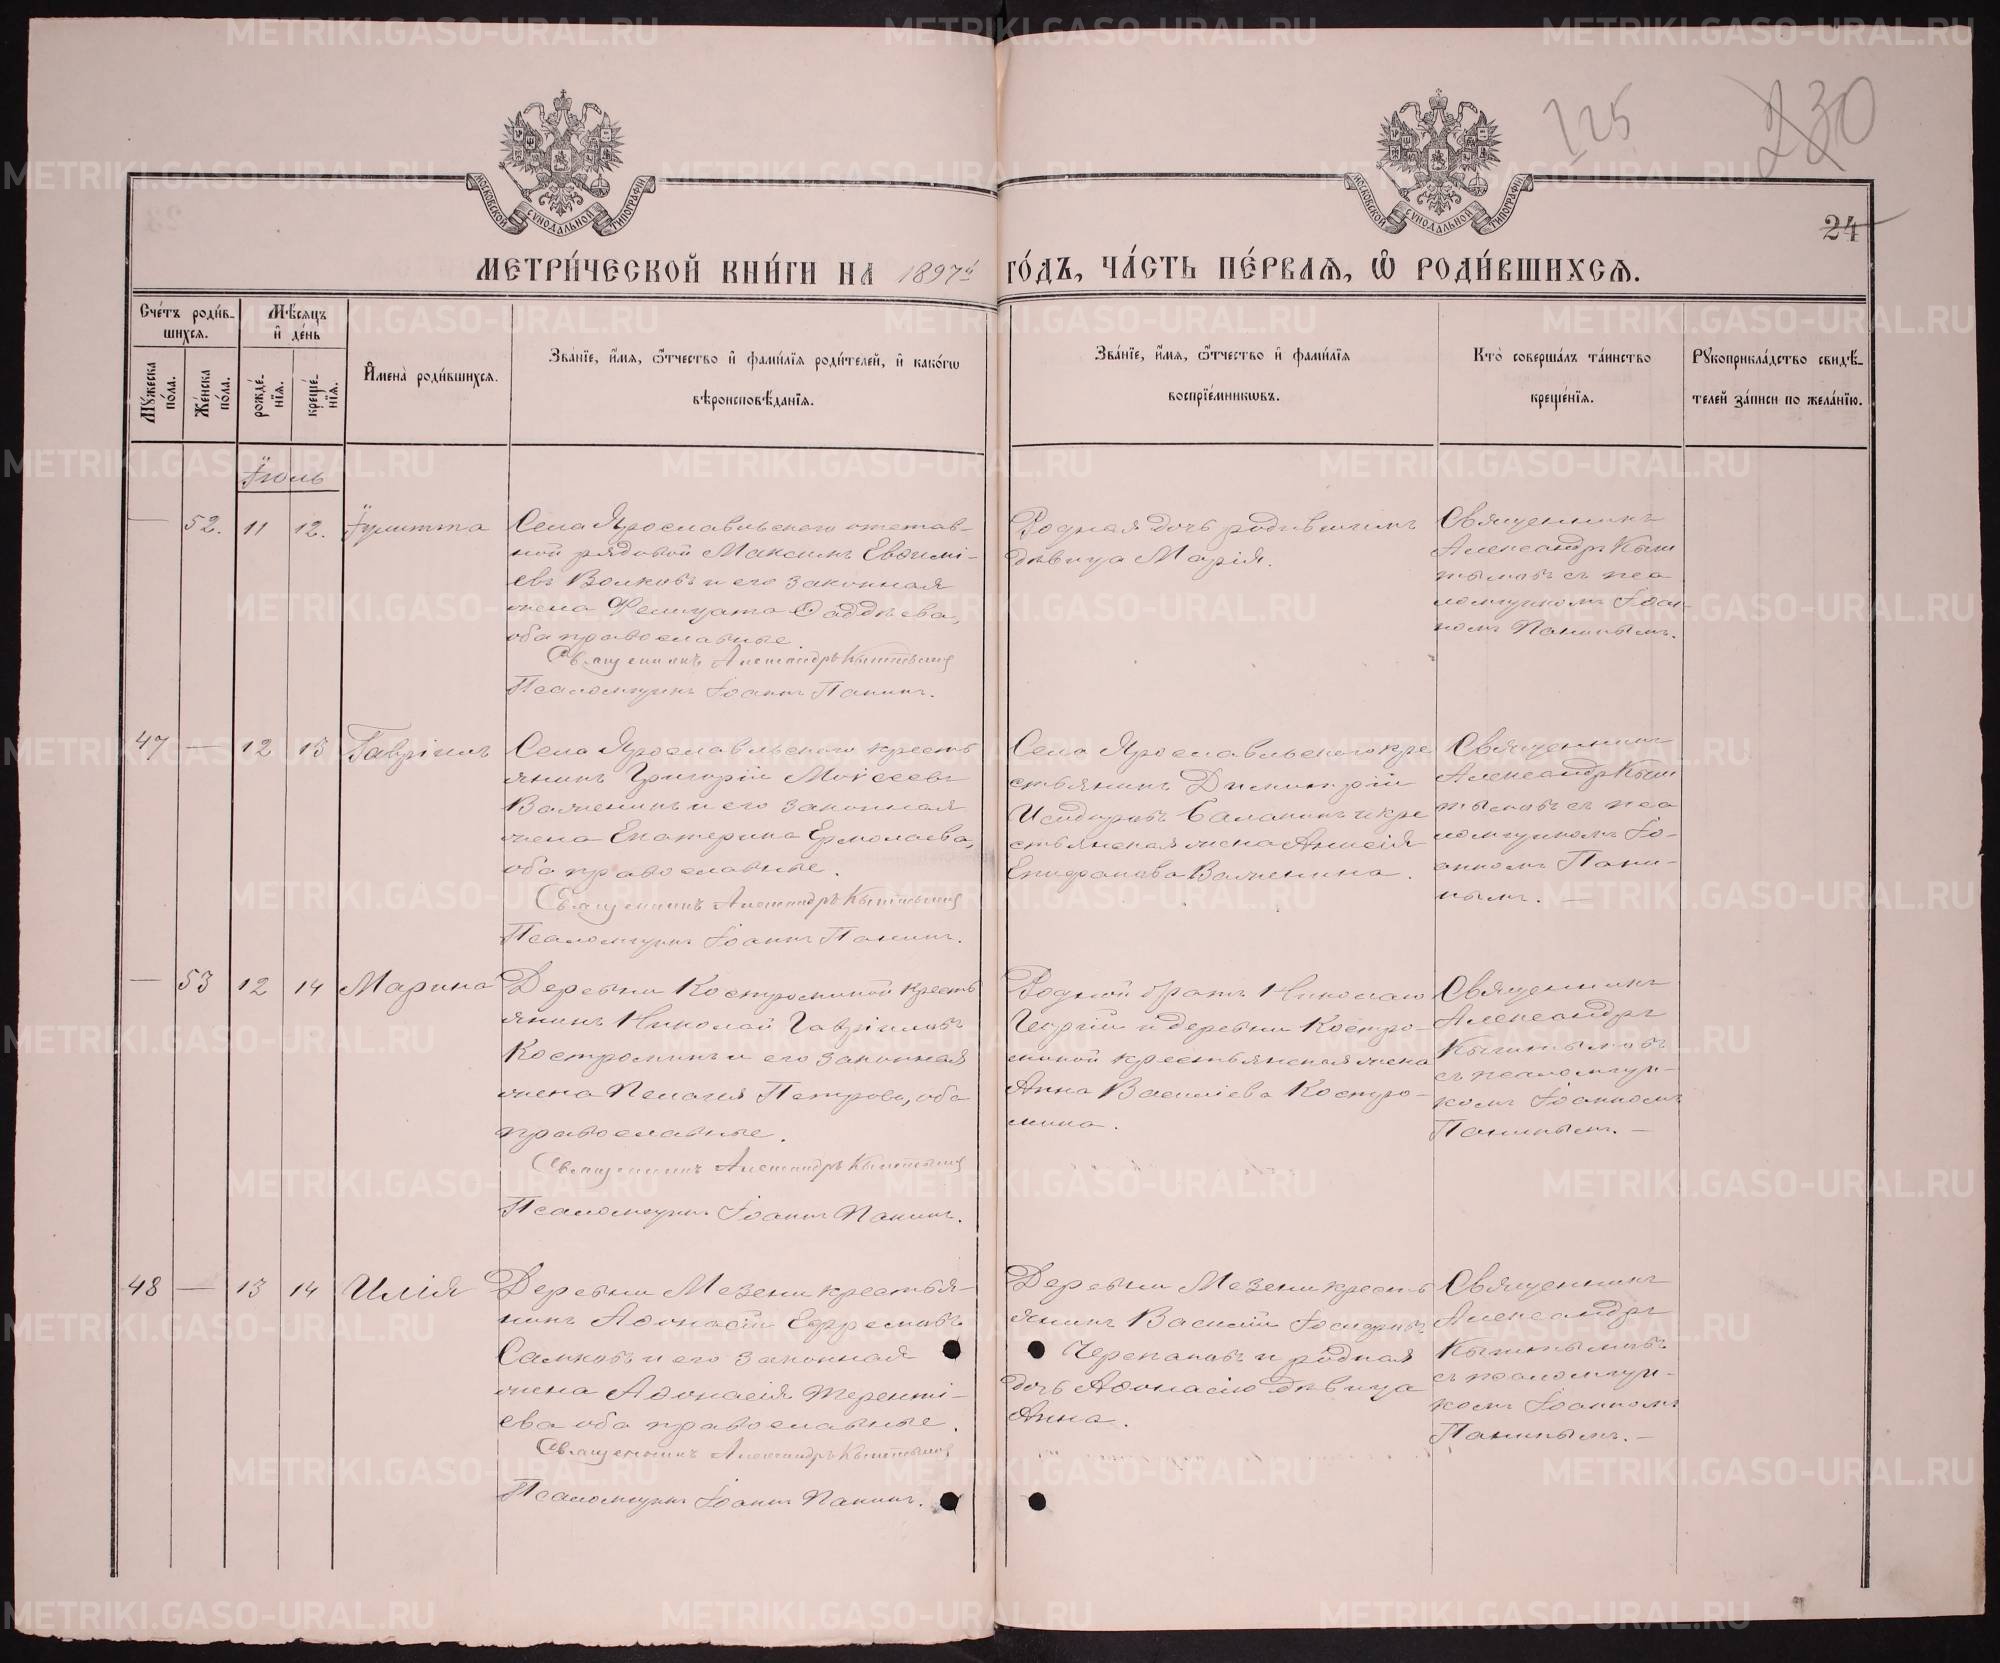 125
230
24
МОСКОВСКОЙ СѴНОДАЛЬНОЙ ТИПОГРАФІИ
МОСКОВСКОЙ СѴНОДАЛЬНОЙ ТИПОГРАФІИ
МЕТРИ́ЧЕСКОЙ КНИ́ГИ НА 1897й ГО́ДЪ, ЧА́СТЬ ПЕ́РВАѦ, Ѡ҆ РОДИ́ВШИХСѦ.
Сче́тъ роди́в-
шихсѧ.
Мѣ́сѧцъ
и҆ де́нь
Мꙋ́жеска по́ла.
Же́нска по́ла.
рожде́-
нїѧ.
креще́-
нїѧ.
И҆мена̀ роди́вшихсѧ.
Зва́нїе, и҆́мѧ, ѻ҆́тчество и҆ фами́лїѧ роди́телей, и҆ како́гѡ
вѣроисповѣ́данїѧ.
Зва́нїе, и҆́мѧ, ѻ҆́тчество и҆ фами́лїѧ
воспрїе́мникѡвъ.
Кто̀ соверша́лъ та́инство
креще́нїѧ.
Рꙋкоприкла́дство свидѣ́-
телей за́писи по жела́нїю.
Іюль
— 52. 11 12. Іулитта
Села Ярославльскаго отстав-
ной рядовой Максимъ Евѳимі-
евъ Волковъ и его законная
жена Фелицата Ѳаддѣева,
оба православные
Священникъ Александръ Кыштымовъ
Псаломщикъ Іоаннъ Панинъ.
Родная дочь родившимъ
дѣвица Марія.
Священникъ
Александръ Кыш
тымовъ съ пса
ломщикомъ Іоан-
номъ Панинымъ.
47 — 12 13 Гавріилъ
Села Ярославльскаго кресть
янинъ Григорій Моисеевъ
Валженинъ и его законная
жена Екатерина Ермолаева,
оба православные.
Священникъ Александръ Кыштымовъ
Псаломщикъ Іоаннъ Панинъ.
Села Ярославльскаго кре
стьянинъ Димитрій
Исидоровъ Саланинъ и кре
стьянская жена Анисія
Епифанова Валженина.
Священникъ
Александръ Кыш
тымовъ съ пса
ломщикомъ Іо-
анномъ Пани-
нымъ. —
— 53 12 14 Марина
Деревни Костроминой кресть
янинъ Николай Гавріиловъ
Костроминъ и его законная
жена Пелагія Петрова, оба
православные.
Священникъ Александръ Кыштымовъ
Псаломщикъ Іоаннъ Панинъ.
Родной братъ Николаю
Георгій и деревни Костро-
миной крестьянская жена
Анна Василіева Костро-
мина.
Священникъ
Александръ
Кыштымовъ
съ псаломщи-
комъ Іоанномъ
Панинымъ. —
48 — 13 14 Илія
Деревни Мезени крестья-
нинъ Аѳонасій Ефремовъ
Самковъ и его законная
жена Аѳонасія Теренті-
ева оба православные.
Священникъ Александръ Кыштымовъ
Псаломщикъ Іоаннъ Панинъ.
Деревни Мезени кресть
янинъ Василій
Черепановъ и родная
дочь Аѳонасію дѣвица
Анна.
Священникъ
Александръ
Кыштымовъ
съ псаломщи-
комъ Іоанномъ
Панинымъ. —
METRIKI.GASO-URAL.RU